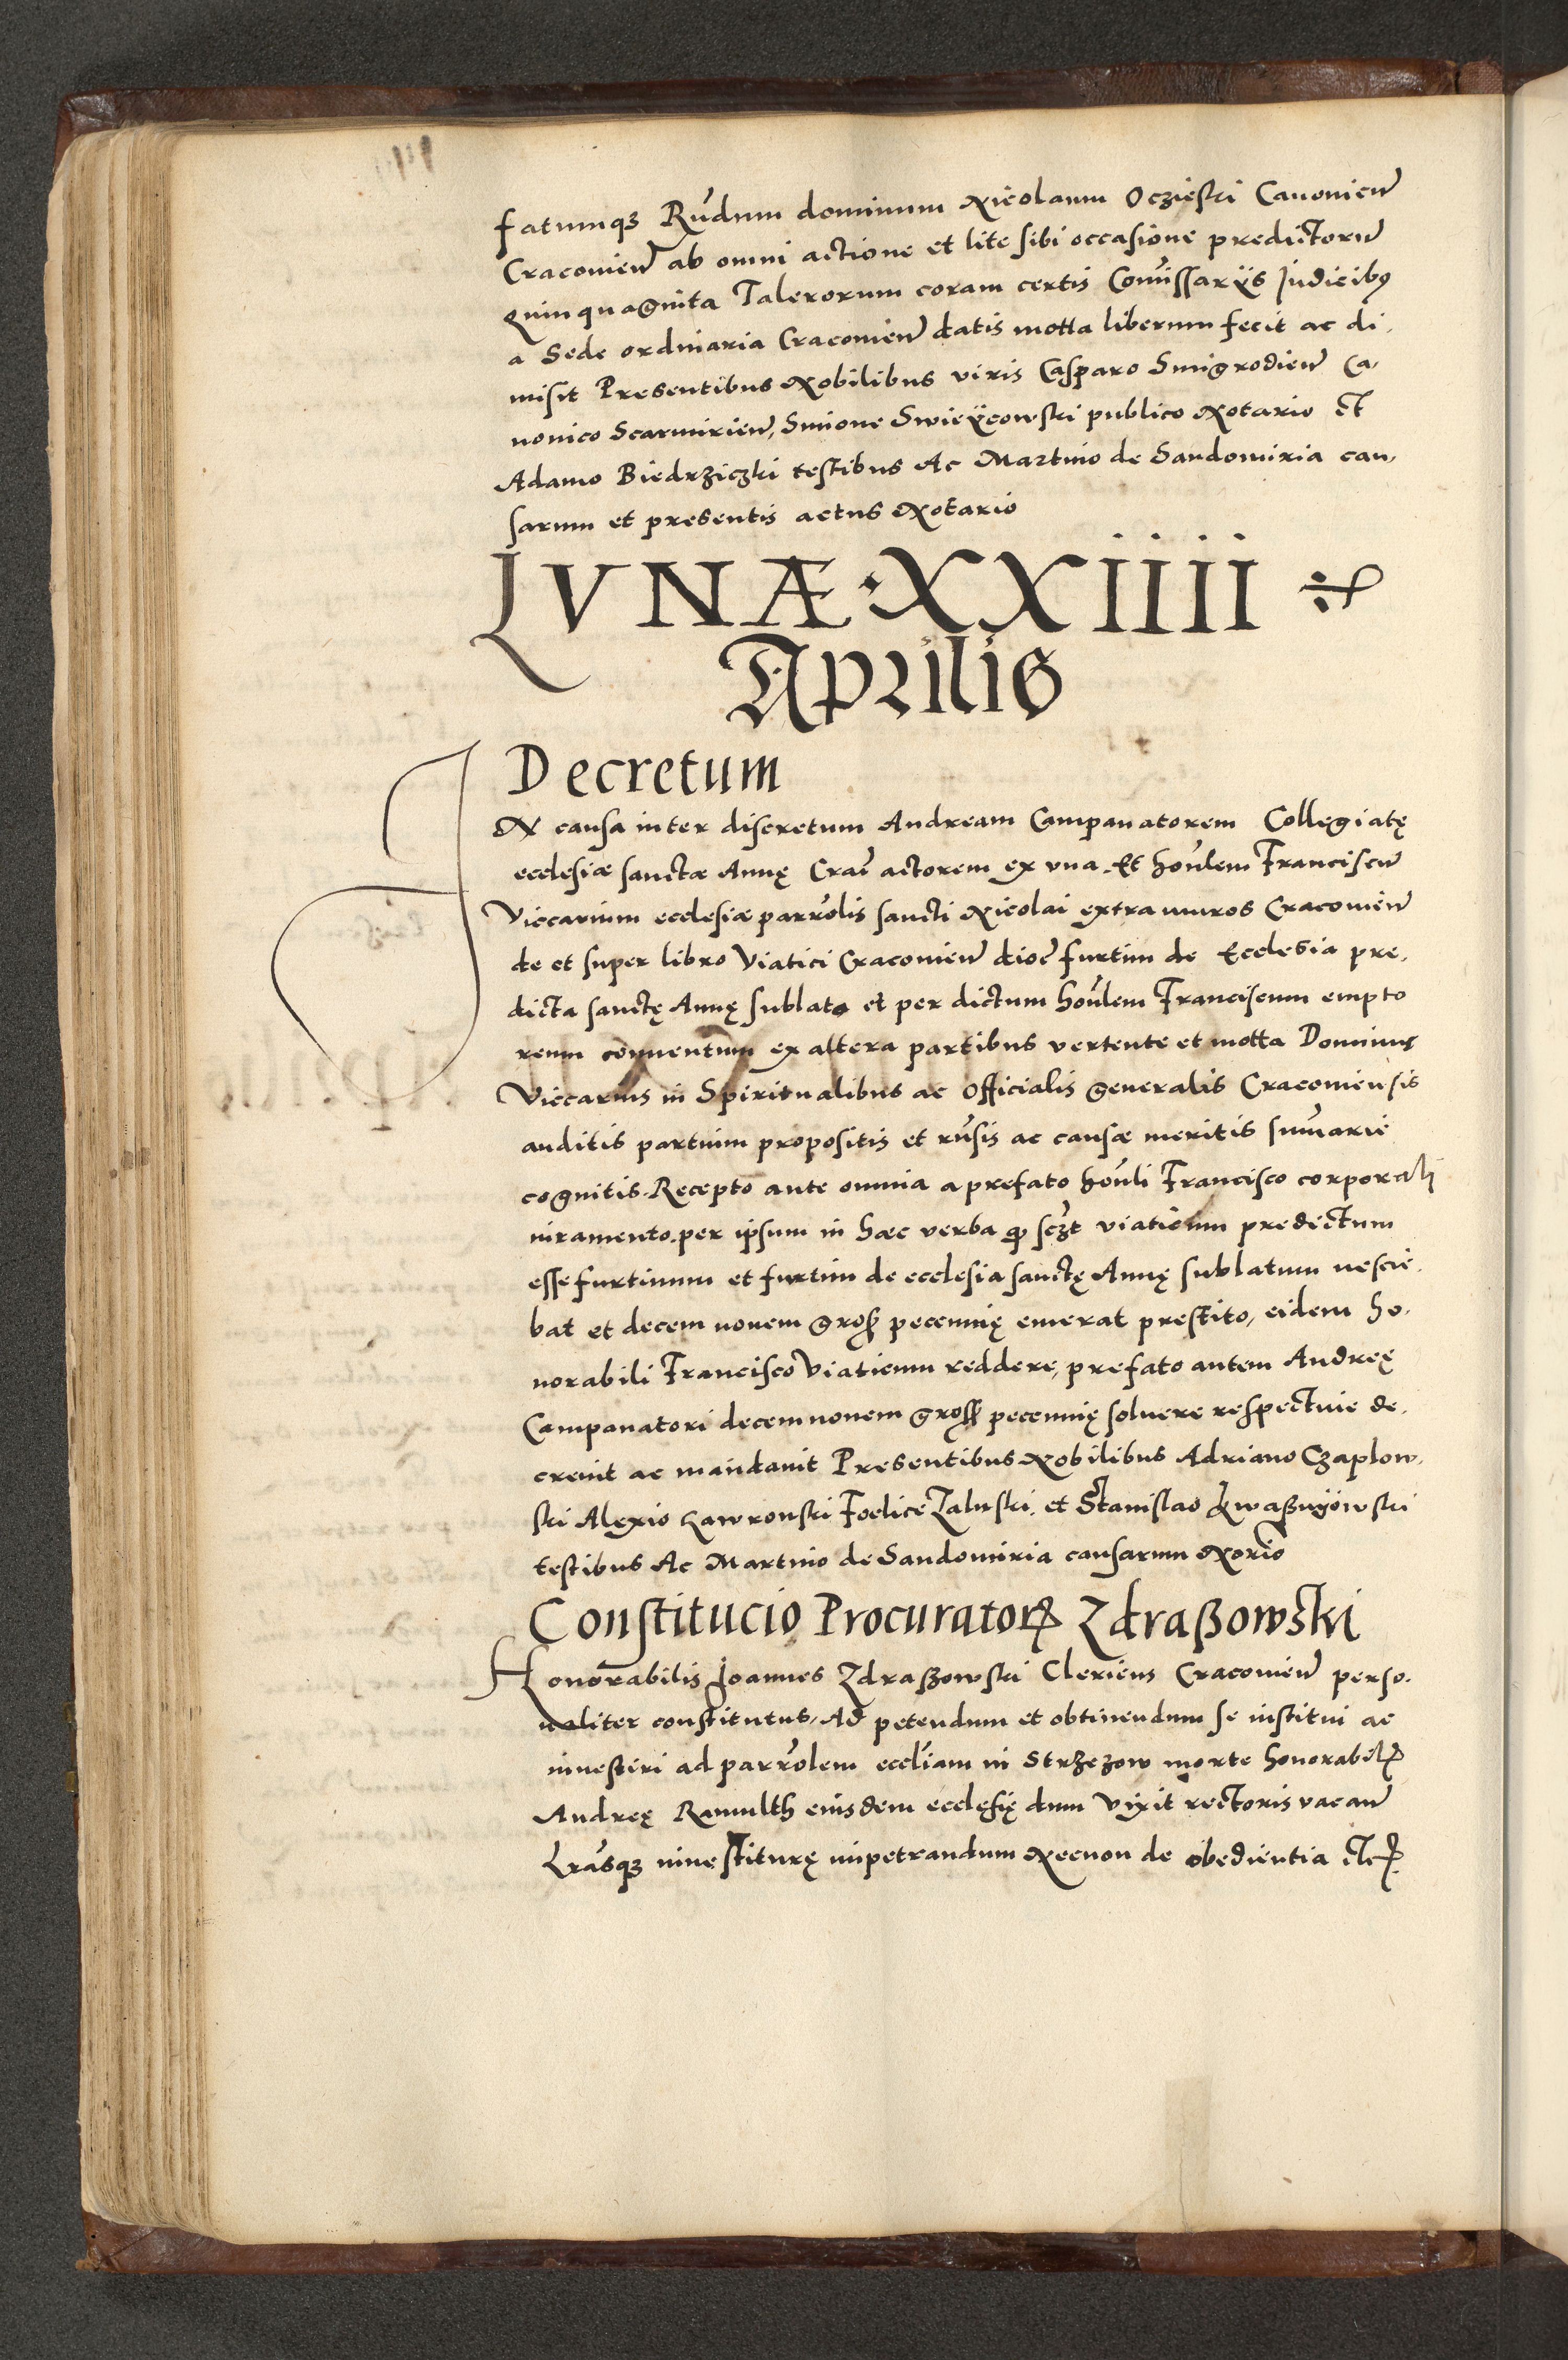 fatumq3 Rūdum dominum Nicolaum Oczieski Canonicū
Cracovieñ ab omni actione et lite sibi occasione predictorū
Quinquaginta Talerorum coram certis Com̄issarÿs Judicibꝯ
a Sede ordinaria Cracovieñ datis motta liberum fecit ac di,
misit Presentibus Nobilibus viris Casparo Smigrodieñ Ca,
nonico Scarmirieñ, Simone Swieÿcowski publico Notario et
Adamo Biedrziczki testibus Ac Martino de Sandomiria cau,
sarum et presentis actus Notario
LVNÆ·XXIIIII
Aprilis
Decretum
IN causa inter discretum Andream Campanatorem Collegiatę
ecclesiæ sanctæ Annę Crac̄ actorem ex vna. Et hon̄lem Franciscū
Viccarium ecclesiæ parr̄olis sancti Nicolai extra muros Cracovieñ
de et super libro Viatici Cracovieñ dioc̄ furtim de Ecclesia pre,
dicta sanctę Annę sublato et per dictum hon̄lem Franciscum empto
reum conuentum ex altera partibus vertente et motta Dominus
Viccarius in Spiritualibus ac Officialis generalis Cracoviensis
auditis partium propositis et rn̄sis ac causæ meritis sum̄arie
cognitis. Recepto ante omnia a prefato hon̄li Francisco corporali
iuramento. per ipsum in hæc verba ꝙ sczt viaticum predictum
esse furtiuum et furtim de ecclesia sanctę Annę sublatum nescie.
bat et decem nouem gross pecunię emerat prestito, eidem ho.
norabili Francisco Viaticum reddere, prefato autem Andreę
Campanatori decem nouem gross pecunię soluere respectiuie de.
creuit ac mandauit Presentibus Nobilibus Adriano Czaplow,
ski Alexio Lawronski Foelice Zaluski. et Stanislao Kwaßnÿowski
testibus Ac Martino de Sandomiria causarum Norio
Constitucio Procuratorꝝ Zdraßowski
Honorabilis Joannes Zdraßowski Clericus Cracovieñ perso.
naliter constitutus, Ad petendum et obtinendum se institui ac
inuestiri ad parr̄olem eccl̄iam in Strzezow morte honorabilꝭ
Andreę Ramulth eiusdem ecclesię dum vixit rectoris vacañ
Lrāsq3 inuestiturę impetrandum Necnon de obedientia etcꝭ